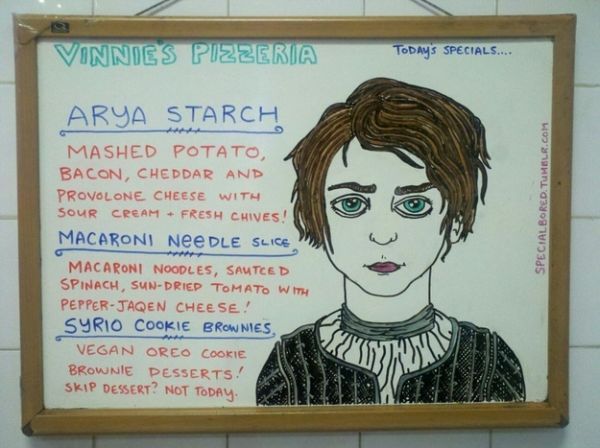 VINNIE'S PIZZERIA
TODAY'S SPECIALS....
ARYA STARCH
MASHED POTATO,
BACON, CHEDDAR AND
PROVOLONE CHEESE WITH
SOUR CREAM + FRESH CHIVES!
MACARONI NEEDLE SLICE
MACARONI NOODLES, SAUTCED
SPINACH, SUN-DRIED TOMATO WITH
PEPPER-JAQEN CHEESE!
SYRIO COOKIE BROWNIES
VEGAN OREO COOKIE
BROWNIE DESSERTS!
SKIP DESSERT? NOT TODAY.
SPECIALBORED.TUMBLR.COM